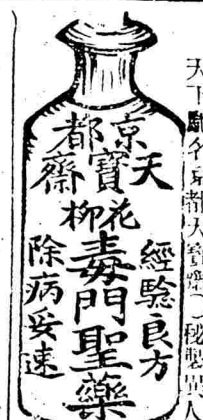 天下馳名京都天寶齋秘製
京都
天寶齋
花柳
經驗良方
毒門聖藥
除病妥速